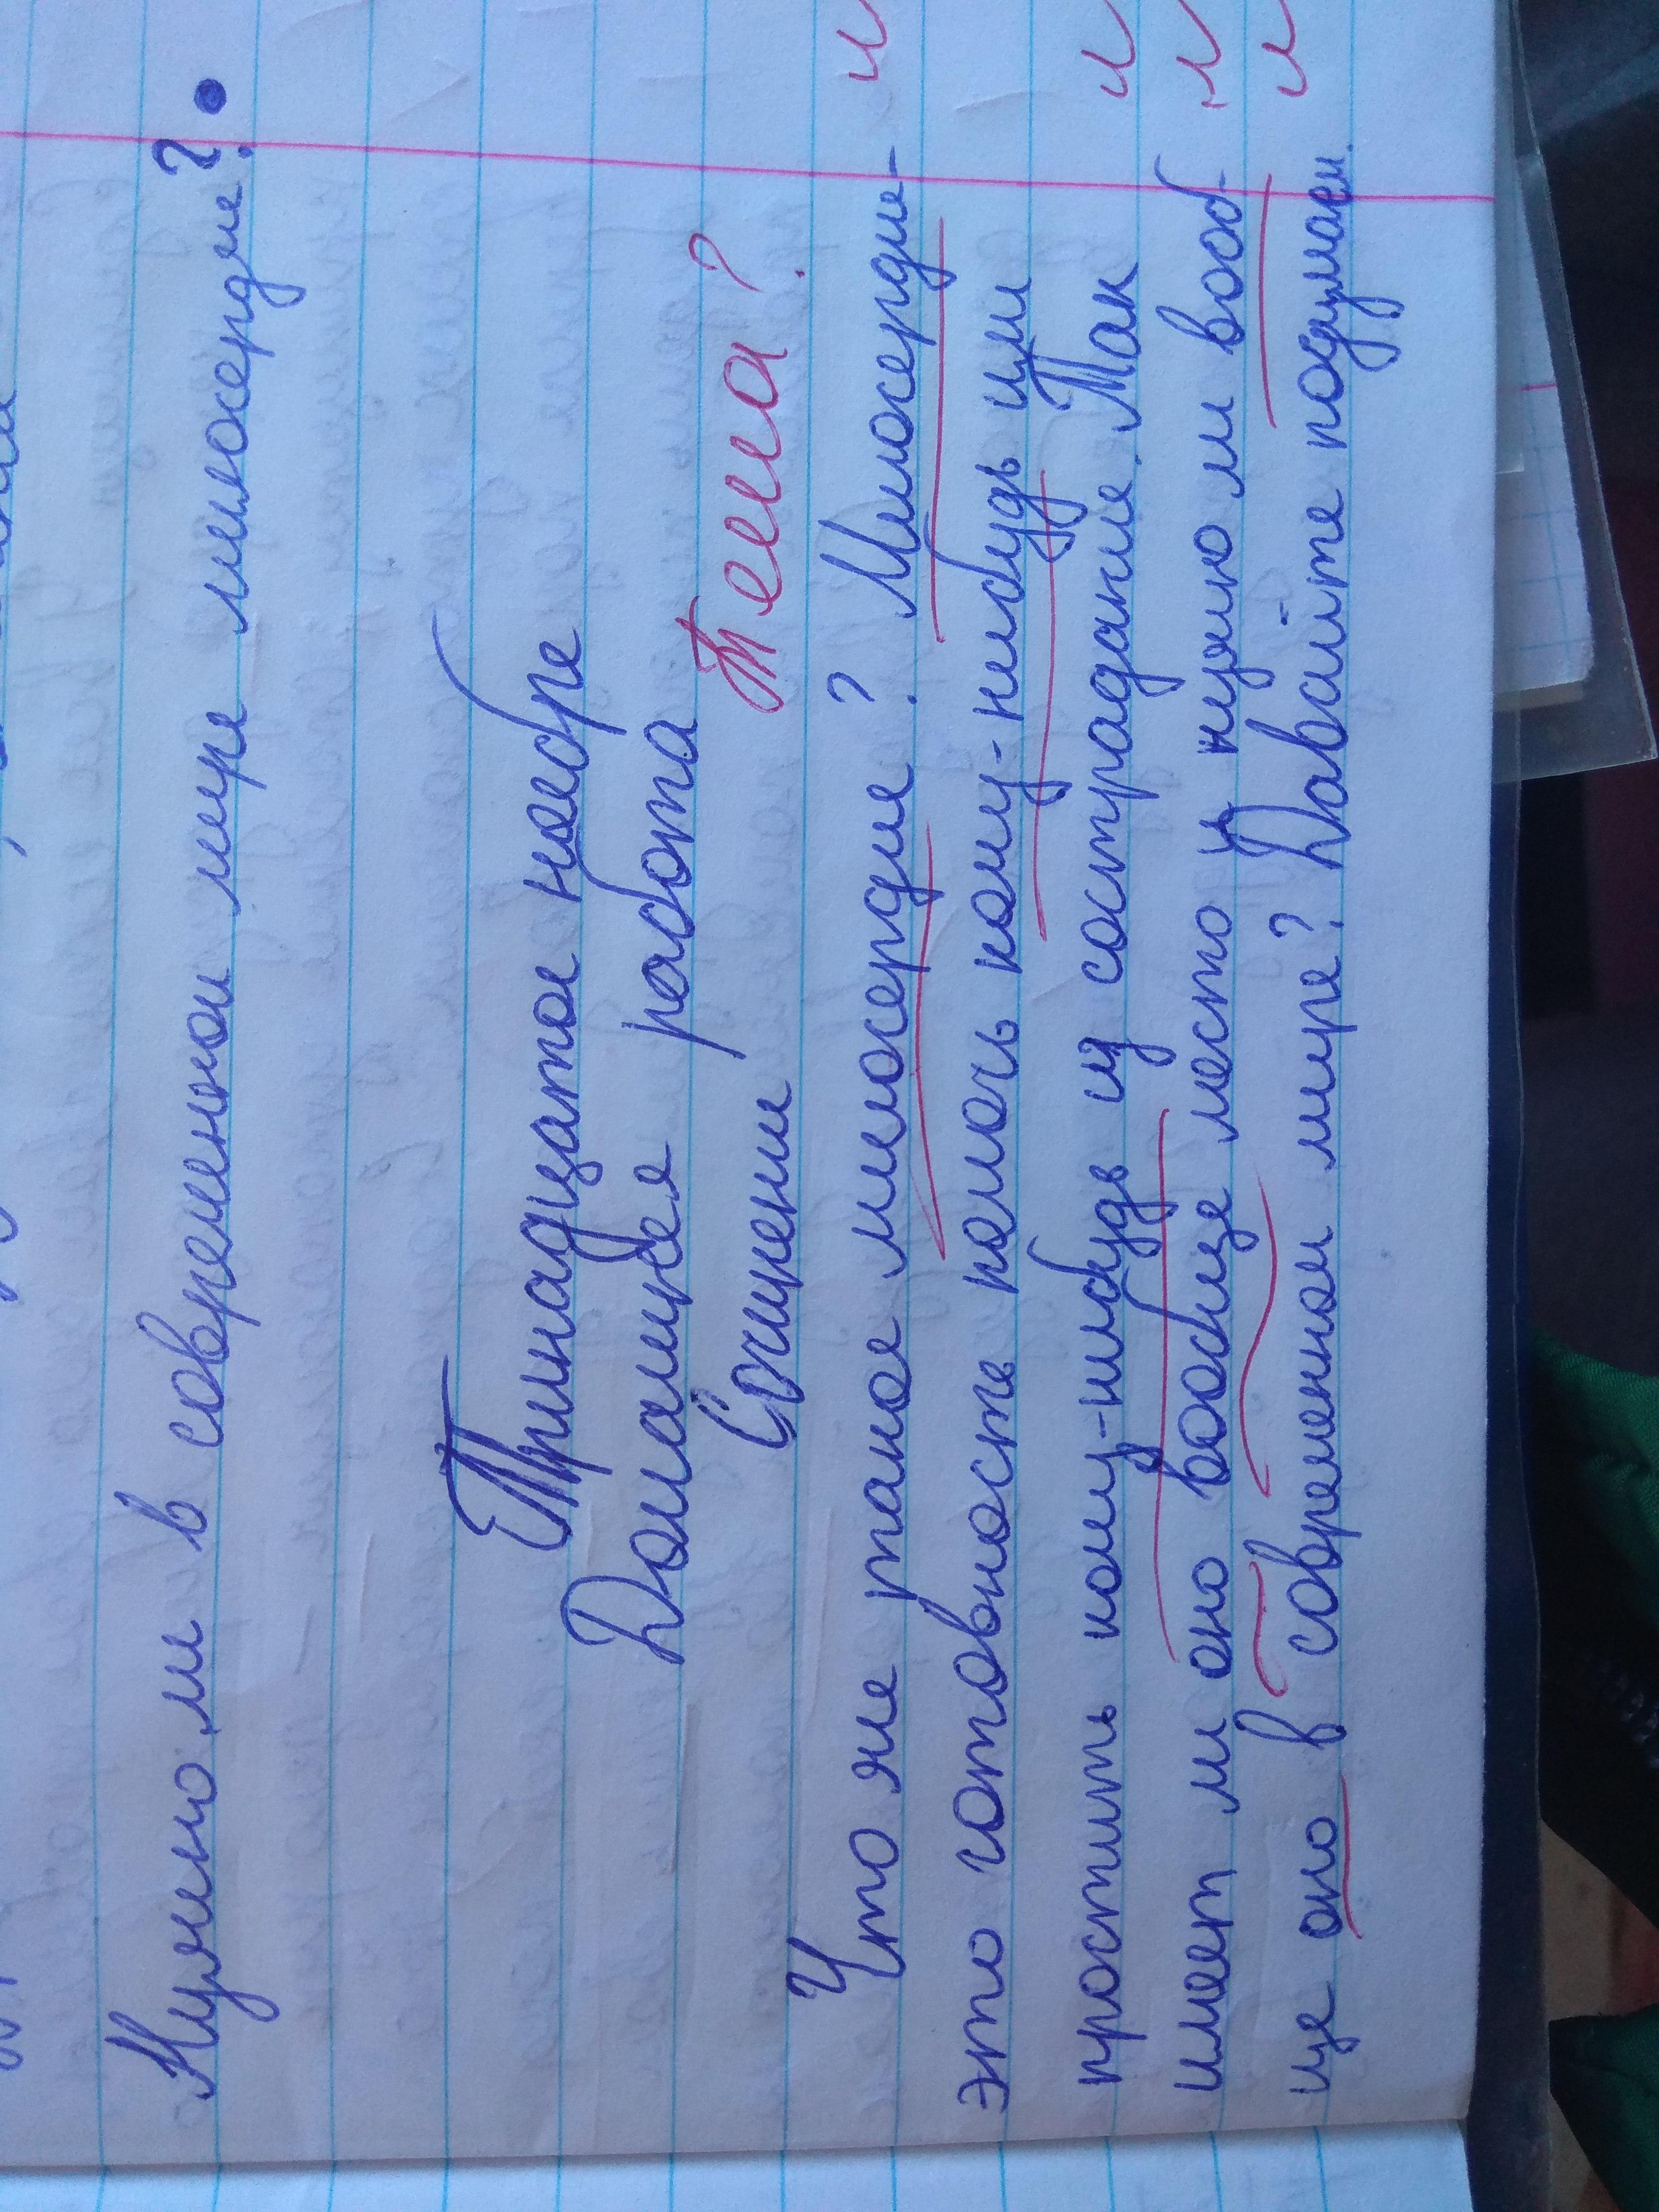 Нужно ли в современном мире милосердие?.
Тринадцатое ноября
Домашняя работа
Сочинение
Тема?
Что же такое милосердие? Милосердие-
это готовность помочь кому-нибудь или
простить кому-нибудь из сострадания. Так
имеет ли оно вообще место и нужно ли вооб-
ще оно в современном мире? Давайте подумаем.